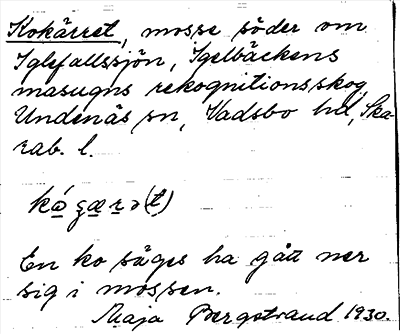 Kokärret, mosse söder om
Iglefallssjön, Igelbäckens
masugns rekognitionsskog,
Undenäs sn, Vadsbo hd, Ska-
rab. l.
En ko säges ha gått ner
sig i mossen.
Maja Bergstrand 1930.